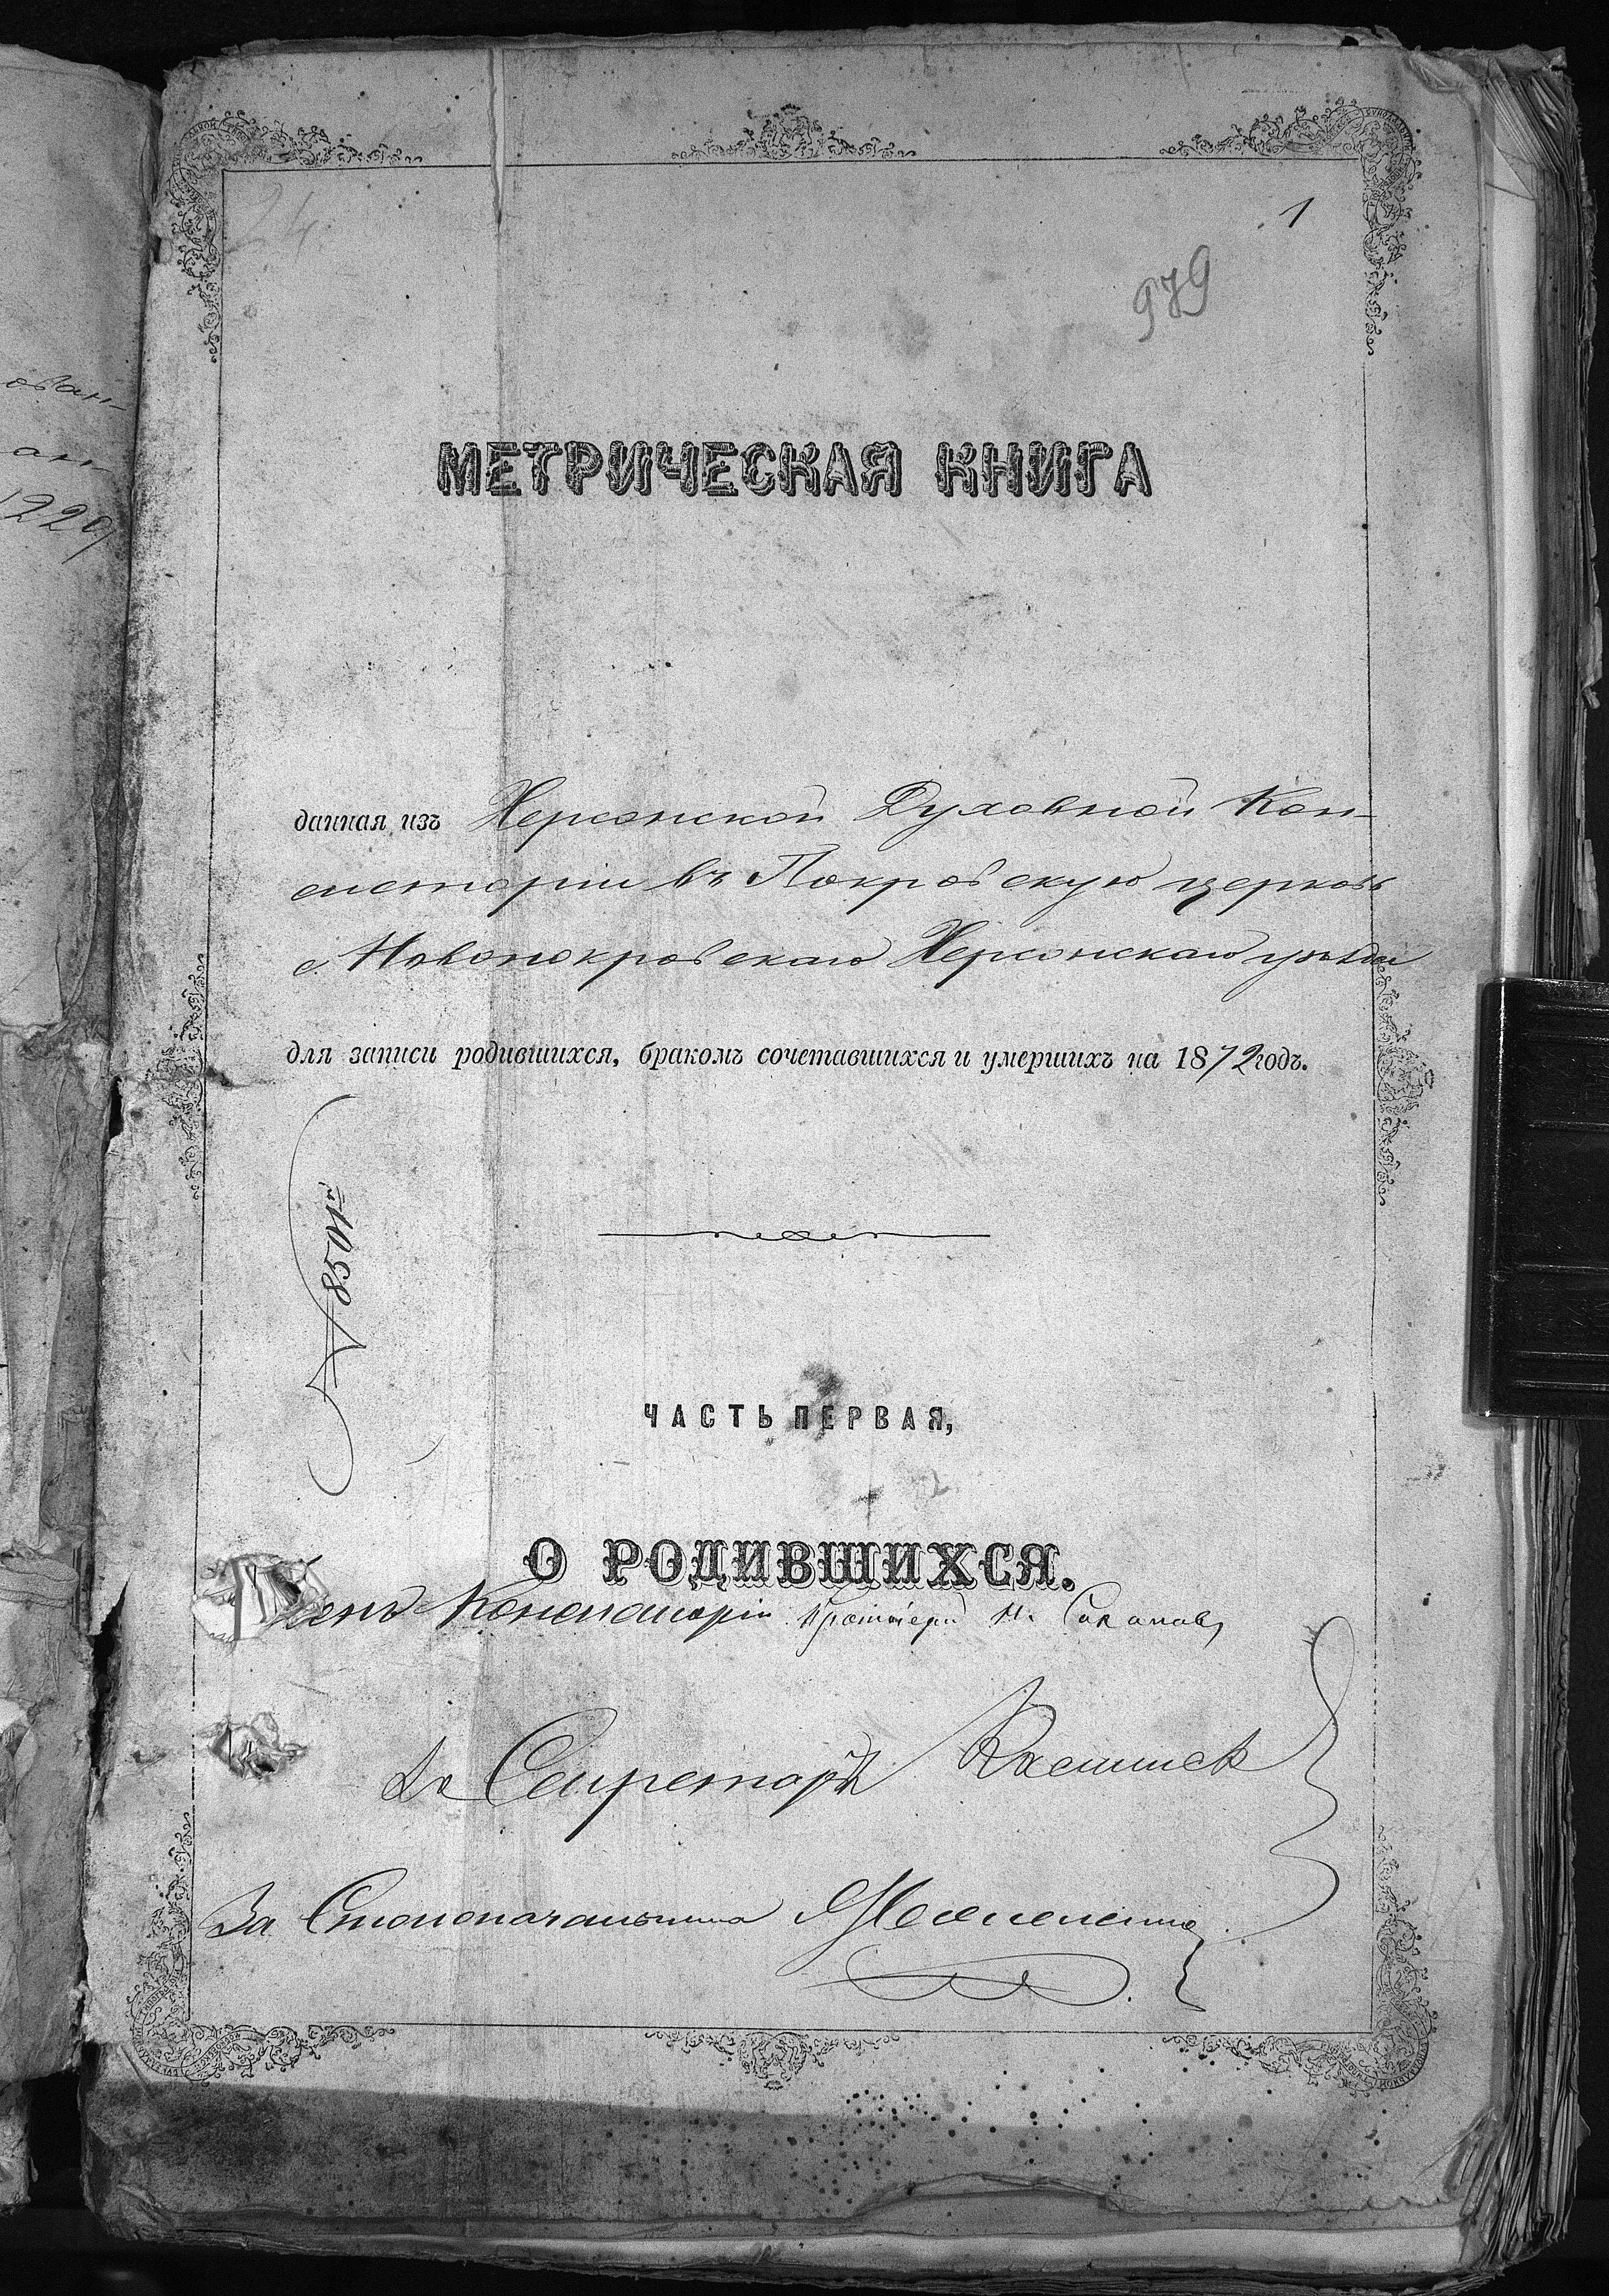 1
24.
979
МЕТРИЧЕСКАЯ КНИГА
данная изъ Херсонской Духовной Кон-
систоріи въ Покровскую церковь
с. Новопокровскаго Херсонскаго уѣзда
для записи родившихся, бракомъ сочетавшихся и умершихъ на 1872 годъ.
№ 8501
ЧАСТЬ ПЕРВАЯ,
О РОДИВШИХСЯ.
Консисторіи Протоіерей
Секретарь
За Столоначальника
1229